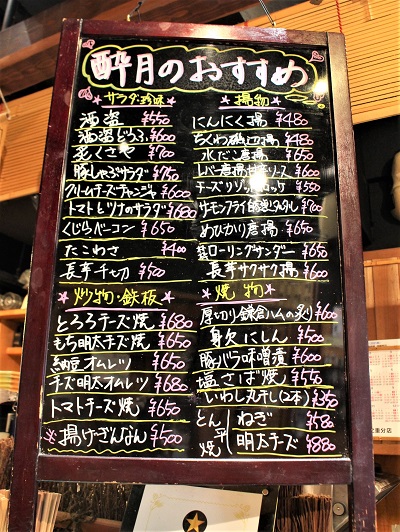 酔月のおすすめ
★サラダ・珍味★
酒盗 ¥550
酒盗とろろ ¥600
炙くさや ¥700
豚しゃぶサラダ ¥750
クリームチーズチャンジャ ¥600
トマトとツナのサラダ ¥680
くじらベーコン ¥650
たこわさ ¥400
長芋千切 ¥500
★炒物・鉄板★
とろろチーズ焼 ¥680
もち明太チーズ焼 ¥650
納豆オムレツ ¥650
チーズ明太オムレツ ¥680
トマトチーズ焼 ¥650
※揚げぎんなん ¥500
★揚物★
にんにく揚 ¥480
ちくわ磯辺揚 ¥480
水だこ唐揚 ¥650
レバー唐揚 ソース ¥600
チーズリゾットコロッケ ¥550
サーモンフライ 自家製タルタル ¥700
めひかり唐揚 ¥650
ローリングサンダー ¥650
長芋サクサク揚 ¥600
★焼物★
厚切り鎌倉ハムの炙り ¥600
身欠にしん ¥500
豚バラ味噌漬 ¥600
塩さば焼 ¥550
いわし丸干し(2本) ¥350
とん平焼 ねぎ ¥580
明太チーズ ¥880